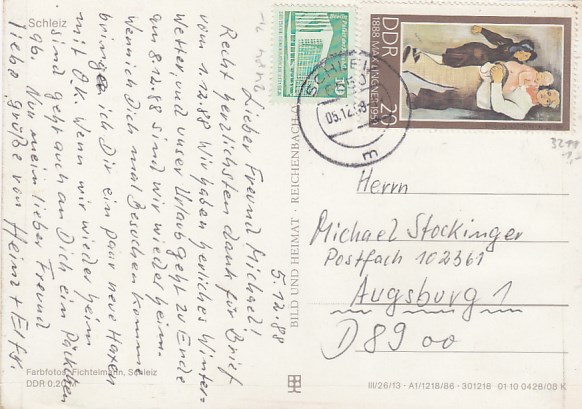 Schleiz
5.12.88
Lieber Freund Michael!
Recht herzlichsten dank für Brief
vom 1.12.88 Wir haben herliches Winter-
Wetter, und unser Urlaub geht zu Ende
am 8.12.88 sind wir wieder heim.
Wenn ich Dich mal Besuchen komme
bringe ich Dir ein paar neue Karten
mit OK. Wenn wir wieder heim
sind geht auch an Dich ein Päckchen
ab. Nun mein lieber Freund
liebe grüße von Heinz + Elfr.
Farbfotos: Fichtelmann, Schleiz
DDR 0,20 M
BILD UND HEIMAT · REICHENBACH
10
DDR
1888 MAX LINGNER 1959
20
SCHLEIZ
05.12.8
Herrn
Michael Stockinger
Postfach 102361
Augsburg 1
D 8900
III/26/13 - A1/1218/86 - 301218 01 10 0426/08 K